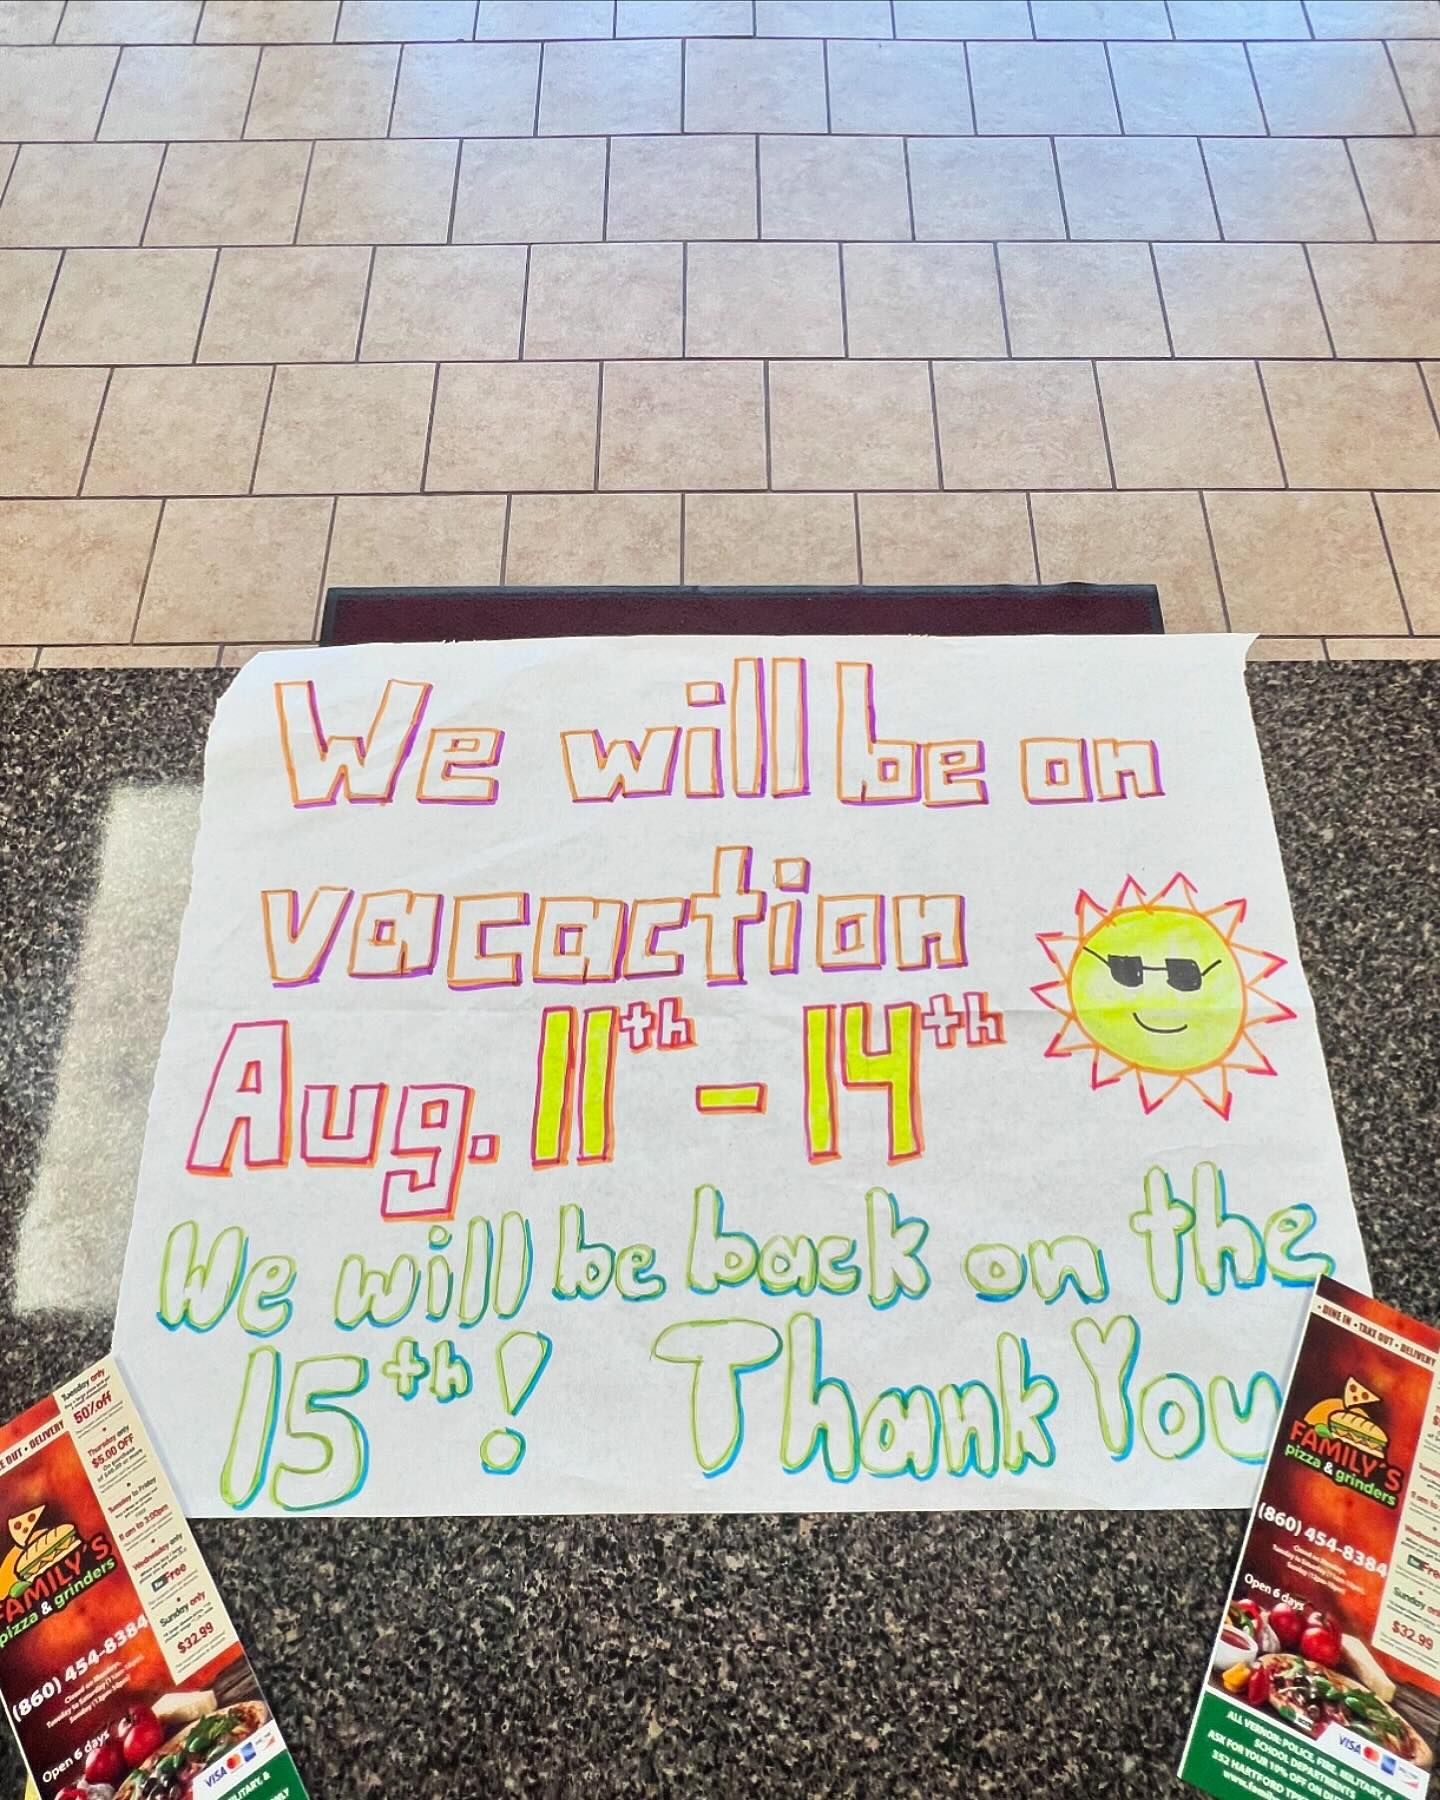 We will be on
vacaction
Aug. 11th - 14th
We will be back on the
15th! Thank You
E OUT • DELIVERY
Tuesday only
50% off
Thursday only
$5.00 OFF
Tuesday to Friday
11 am to 3:00pm
Wednesday only
Free
Sunday only
$32.99
FAMILY'S
pizza & grinders
(860) 454-8384
Closed on Mondays.
Open 6 days
VISA
• DINE IN • TAKE OUT • DELIVERY
FAMILY'S
pizza & grinders
(860) 454-8384
Closed on Mondays.
Open 6 days
Sunday
$32.99
VISA
ALL VERNON: POLICE, FIRE, MILITARY, &
SCHOOL DEPARTMENTS
ASK FOR YOUR 10% OFF ON
352 HARTFORD